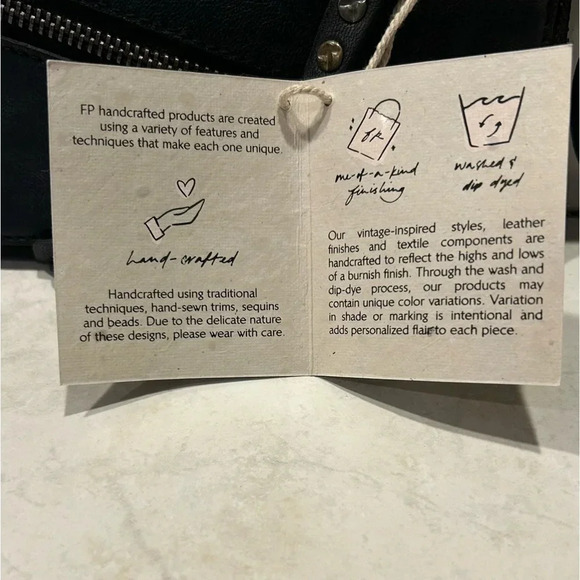 FP handcrafted products are created
using a variety of features and
techniques that make each one unique.
hand-crafted
Handcrafted using traditional
techniques, hand-sewn trims, sequins
and beads. Due to the delicate nature
of these designs, please wear with care.
one-of-a-kind
finishing
washed &
dip dyed
Our vintage-inspired styles, leather
finishes and textile components are
handcrafted to reflect the highs and lows
of a burnish finish. Through the wash and
dip-dye process, our products may
contain unique color variations. Variation
in shade or marking is intentional and
adds personalized flair to each piece.